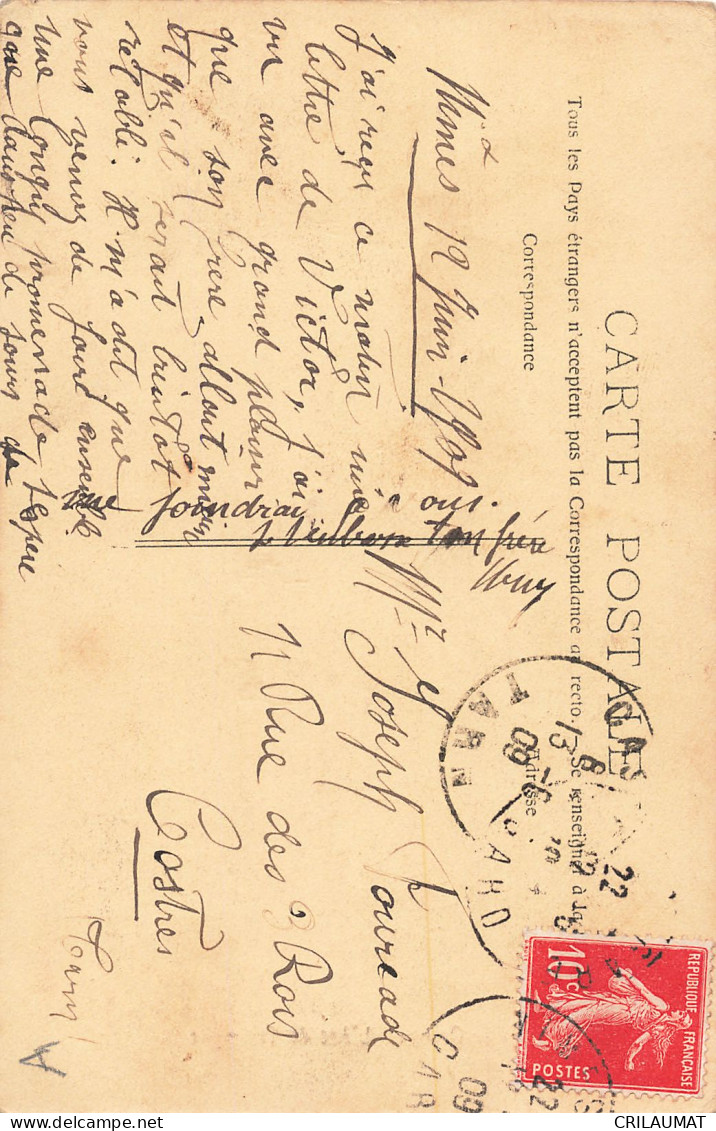 CARTE POSTALE
Tous les Pays étrangers n'acceptent pas la Correspondance au recto. - Se renseigner à la
Correspondance
Adresse
Nimes 12 Juin 1909
J'ai reçu ce matin une
lettre de Victor, j'ai
vu avec grand plaisir
que son frere allait mieux
et qu'il serait bientot
retabli. Il m'a dit que
vous venez de faire ensemble
une longue promenade. J'espere
que dans peu de jours je
me joindrai a vous.
Je t'embrasse Ton frére
Mr Joseph Fourcade
11 Rue des 3 Rois
Castres
Tarn
A
REPUBLIQUE FRANÇAISE
10c
POSTES
TARN
13 - 6
09
GARD
22
09
CRILAUMAT